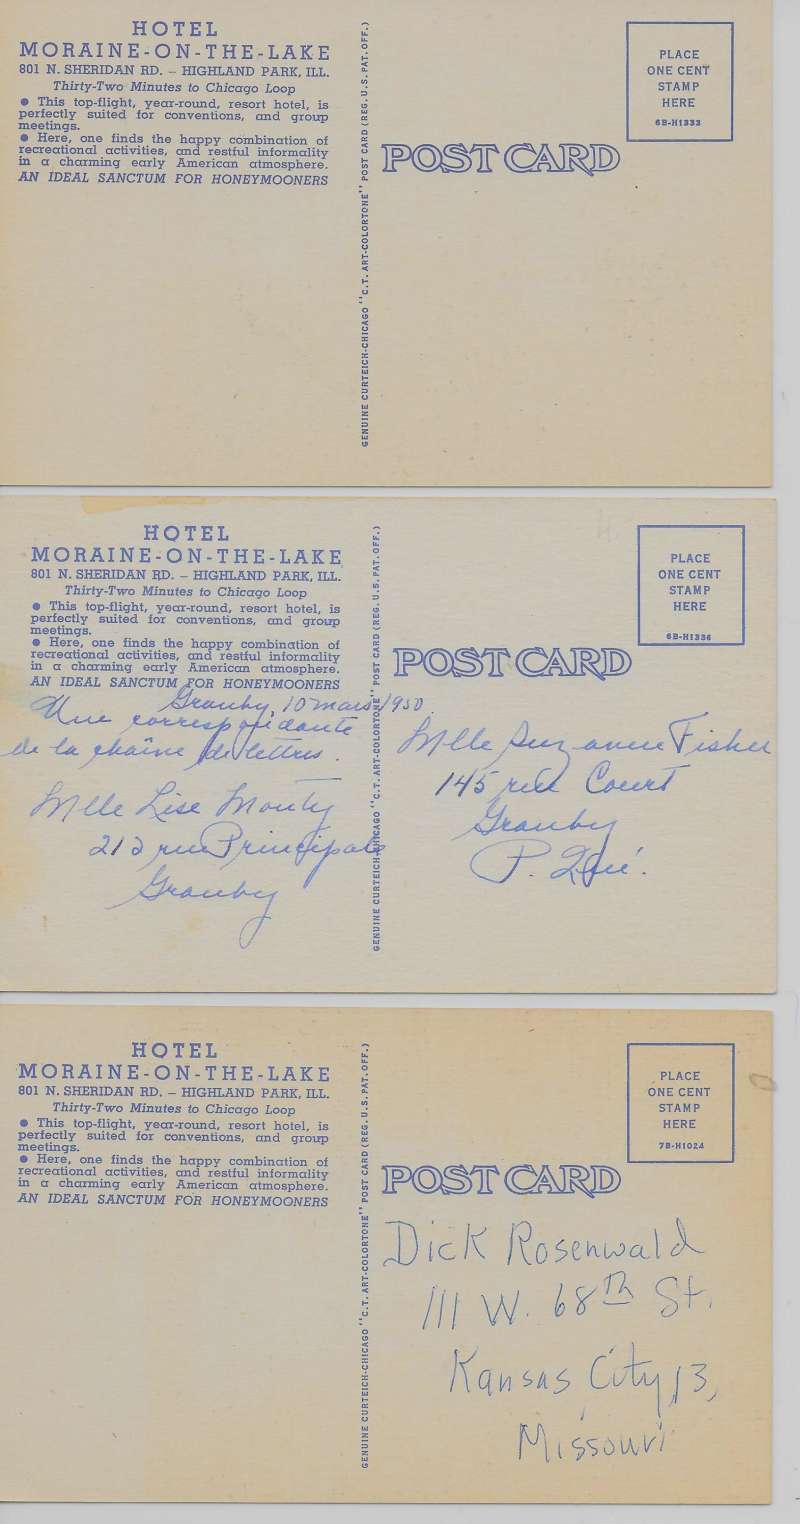 HOTEL
MORAINE-ON-THE-LAKE
801 N. SHERIDAN RD. – HIGHLAND PARK, ILL.
Thirty-Two Minutes to Chicago Loop
● This top-flight, year-round, resort hotel, is
perfectly suited for conventions, and group
meetings.
● Here, one finds the happy combination of
recreational activities, and restful informality
in a charming early American atmosphere.
AN IDEAL SANCTUM FOR HONEYMOONERS
GENUINE CURTEICH-CHICAGO "C.T. ART-COLORTONE" POST CARD (REG. U.S. PAT. OFF.)
POST CARD
PLACE
ONE CENT
STAMP
HERE
6B-H1333
HOTEL
MORAINE-ON-THE-LAKE
801 N. SHERIDAN RD. – HIGHLAND PARK, ILL.
Thirty-Two Minutes to Chicago Loop
● This top-flight, year-round, resort hotel, is
perfectly suited for conventions, and group
meetings.
● Here, one finds the happy combination of
recreational activities, and restful informality
in a charming early American atmosphere.
AN IDEAL SANCTUM FOR HONEYMOONERS
Granby, 10 mars 1950.
Une correspondante
de la chaîne de lettres.
Mlle Lise Monty
212 rue Principale
Granby
GENUINE CURTEICH-CHICAGO "C.T. ART-COLORTONE" POST CARD (REG. U.S. PAT. OFF.)
POST CARD
PLACE
ONE CENT
STAMP
HERE
6B-H1336
Mlle Suzanne Fisher
145 rue Court
Granby
P. Qué.
HOTEL
MORAINE-ON-THE-LAKE
801 N. SHERIDAN RD. – HIGHLAND PARK, ILL.
Thirty-Two Minutes to Chicago Loop
● This top-flight, year-round, resort hotel, is
perfectly suited for conventions, and group
meetings.
● Here, one finds the happy combination of
recreational activities, and restful informality
in a charming early American atmosphere.
AN IDEAL SANCTUM FOR HONEYMOONERS
GENUINE CURTEICH-CHICAGO "C.T. ART-COLORTONE" POST CARD (REG. U.S. PAT. OFF.)
POST CARD
PLACE
ONE CENT
STAMP
HERE
7B-H1024
Dick Rosenwald
111 W. 68th St.
Kansas City, 13,
Missouri